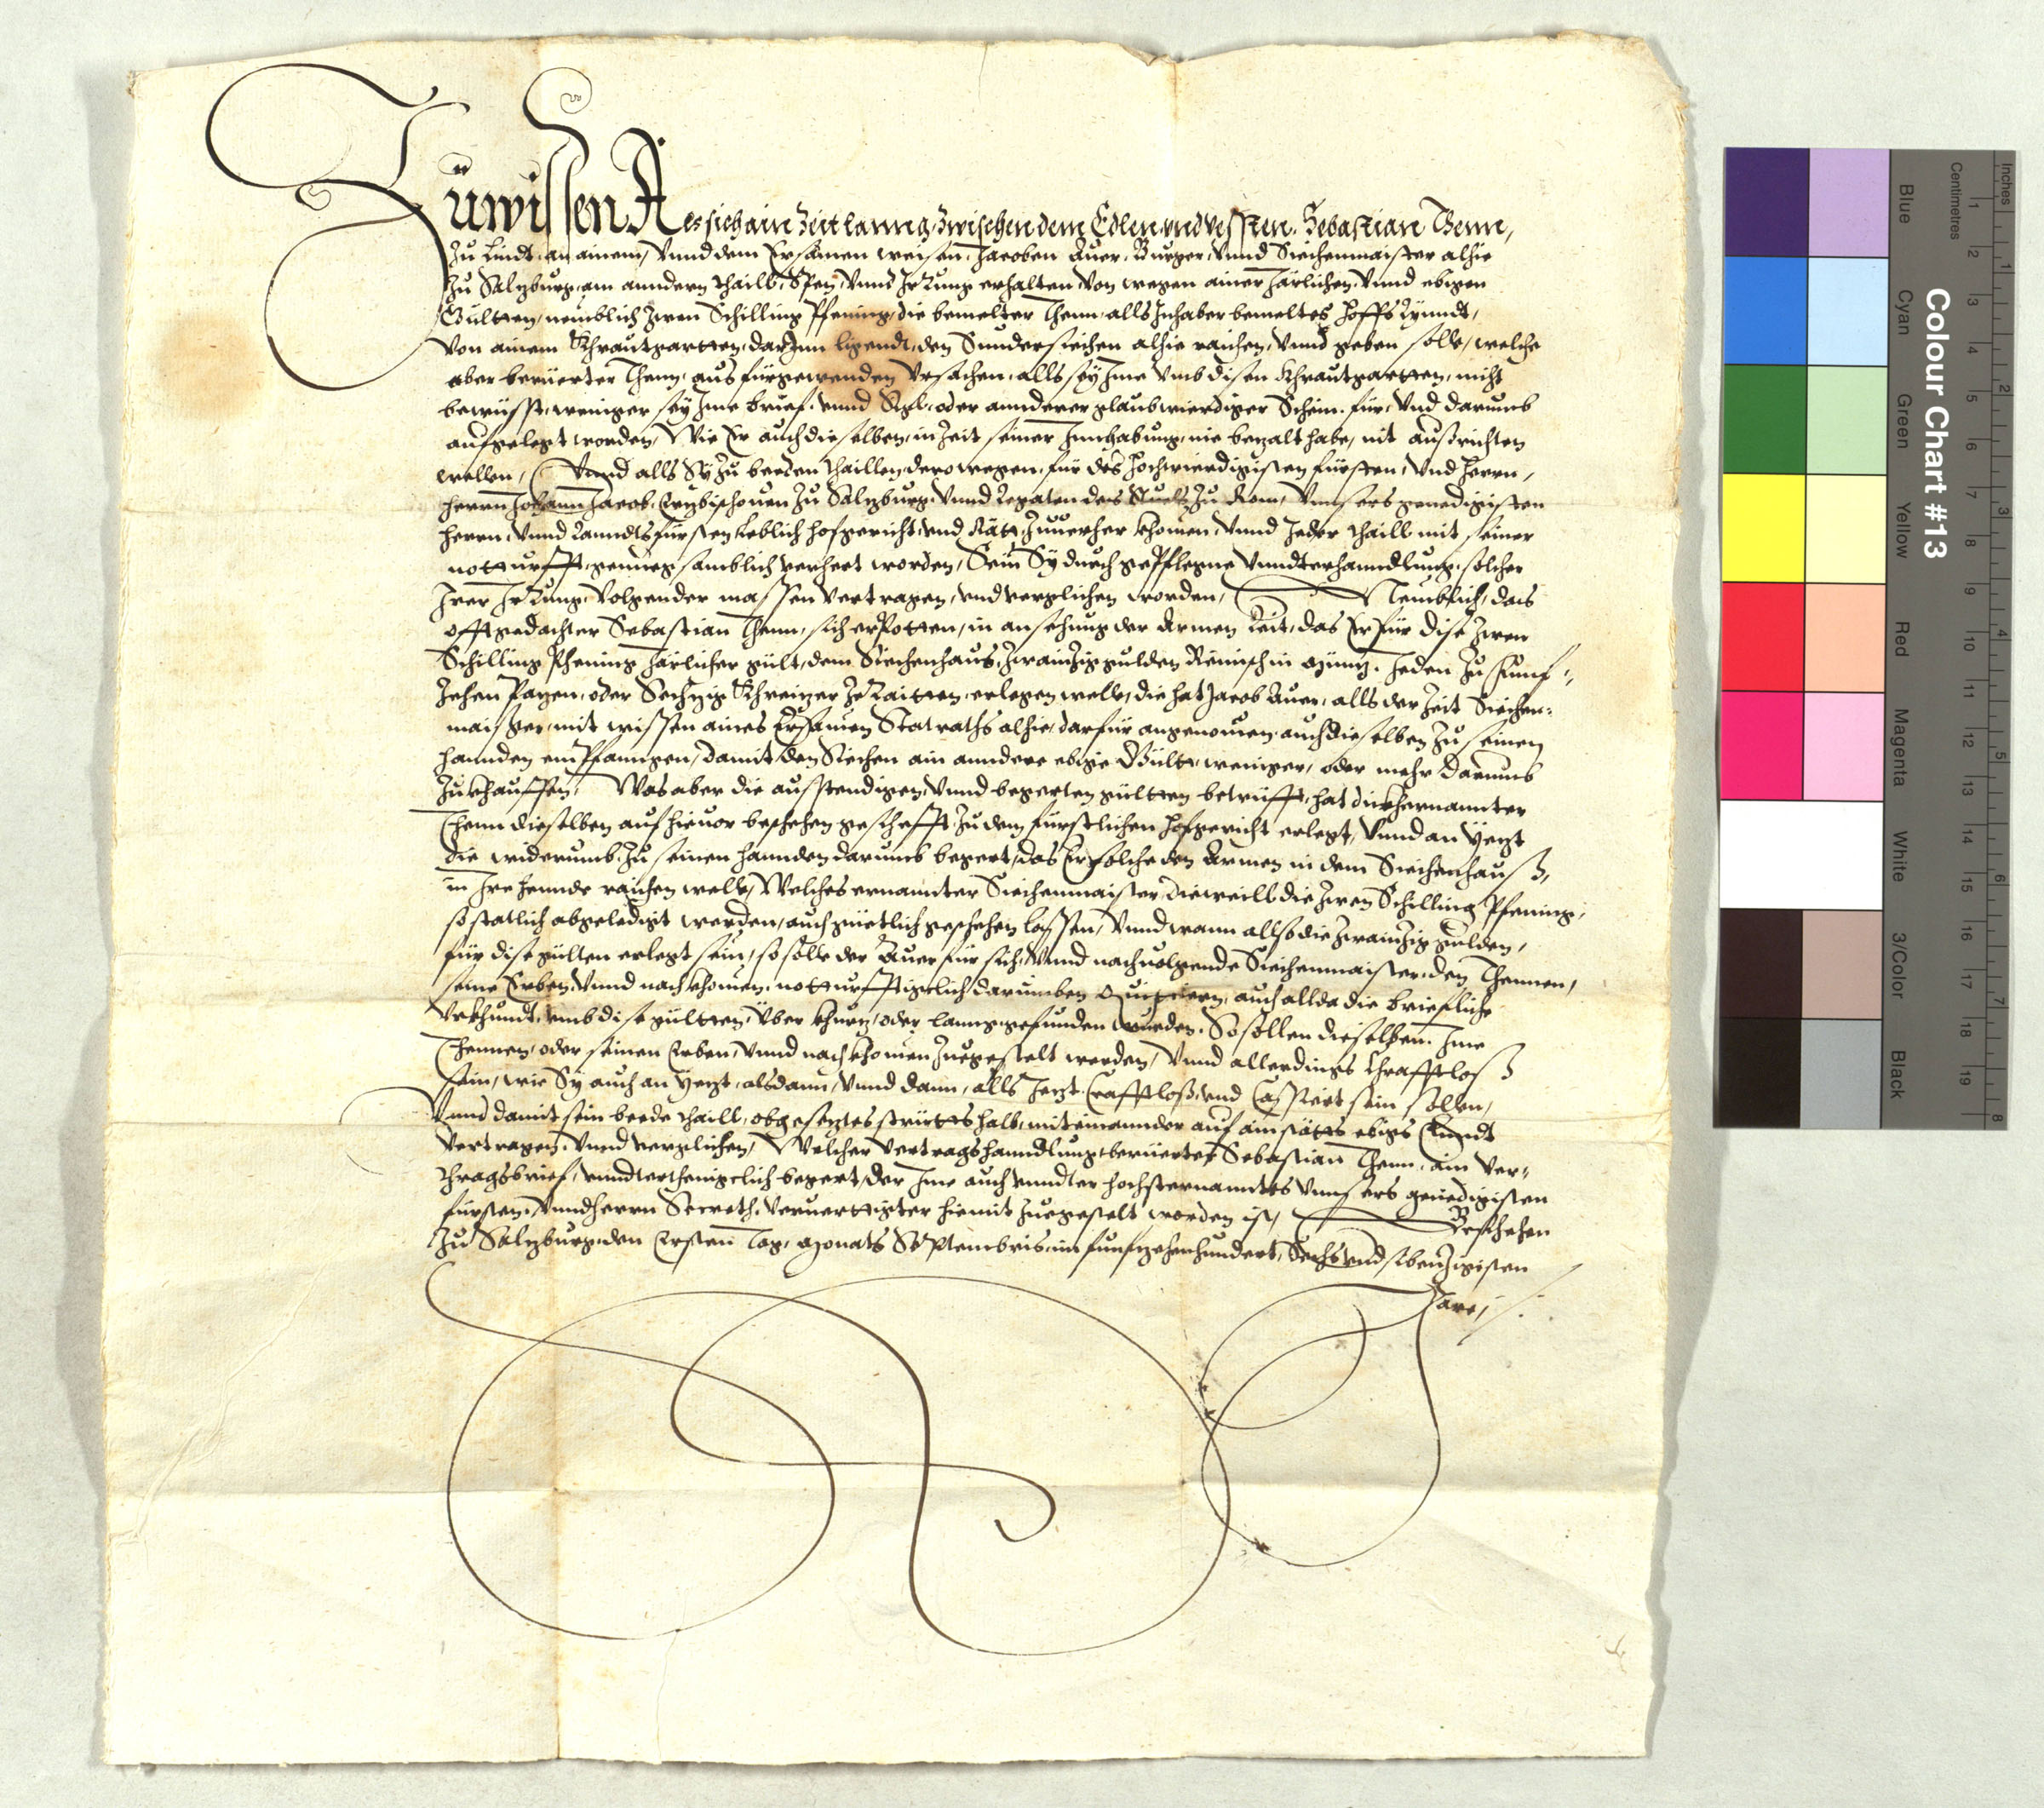 Zuwissen Als sich ain Zeit lanng, zwischen dem Edlen, und vessten, Sebastian Thenn,
zu Lindt, an ainem, Vnnd dem Ersamen weisen, Jacoben Auer, Burger, Vnnd Siechenmaister alhie
zu Salzburg, am anndern thaill, Spen, Vnnd Irrung erhalten, Von wegen ainer Järlichen, Vnnd ebigen
Gültten, nemblich zwen Schilling Pfening, die bemelter Thenn, alls Inhaber bemeltes Hoffs Lynndt,
Von ainem Khrautgartten, darJnn ligendt, den Sundersiechen alhie raichen, Vnnd geben solle, welche
aber berüerter Thenn, aus fürgewenden Vrsachen, alls sey Jme Vmb disen Khrautgartten, nicht
bewüsst, weniger sey Jme brief, vnnd Sigl, oder annderer glaubwierdiger Schein, für, Vnd darumb
aufgelegt worden, Wie Er auch dieselben, in Zeit seiner Innhabung, nie bezalt habe, nit außrichten
wellen, Vnnd alls Sy zu beeden thaillen, derowegen, für des Hochwierdigisten fürsten, Vnd Herrn,
Herrn Johann Jacob, Erzbischouen zu Salzburg, Vnnd Legaten des Stuels zu Rom, Vnnsers genedigisten
Herrn, Vnnd Lanndtsfürsten, löblich Hofgericht, vnd Rätt, zuuerher khomen, Vnnd Jeder thaill mit seiner
notturfft, genuegsamblich verhert worden, Sein Sy durch gepflegne Vnndterhanndlung, solcher
Irer Irrung, Volgender massen Vertragen, vnd verglichen worden, Nemblich, das
offtgedachter Sebastian Thenn, sich erpotten, in ansehung der Armen Leit, das Er für dise zwen
Schilling Pfening Järlicher gült, dem Siechenhaus, zwainzig gulden Reinisch in Münz, Jeden zu Funf-
zehen Pazen, oder Sechzig Khreizer ze Raitten, erlegen welle, die hat Jacob Auer, alls der Zeit Siechen-
maister, mit wissen aines Ersamen Statraths alhie, darfür angenomen, auch dieselben zu seinen
hannden empfanngen, damit den Siechen ain anndere ebige Gült, weniger, oder mehr darumb
zukhauffen, Was aber die ausstendigen, Vnnd begerten gültten betrifft, hat dickhernannter
Thenn dieselben auf hieuor beschehen geschefft, zu dem fürstlichen Hofgericht erlegt, Vnnd an Yezt
die widerumb, zu seinen hannden darumb begert, das Er solche den Armen in dem Siechenhauß,
in Ire hennde raichen welle, Welches ernannter Siechenmaister, dieweill die zwen Schilling Pfening,
so statlich abgeledigt werden, auch güetlich geschehen lassen, Vnnd wann allso die zwainzig gulden,
für dise gülten erlegt sein, so solle der Auer für sich, Vnnd nachuolgende Siechenmaister, den Thennen,
seine Erben, Vnnd nachkhomen, notturfftigclich darumben Quittiern, auch allda die briefliche
Vrkhundt, vmb dise gültten, Über khurz, oder lanng gefunden wurden, So sollen dieselben, Jme
Thennen, oder seinen Erben, Vnnd nachkhomen zuegestelt werden, Vnnd allerdings khrafftloß
sein, wie Sy auch an Yezt, alsdann, Vnnd dann, alls Jezt Crafftloß, vnd Cassiert sein sollen,
Vnnd damit sein beede thaill, obgesezstes stritts halb, miteinannder auf ain stätts ebigs Enndt
Vertragen, Vnnd verglichen, Welcher Vertragshanndlung, berüerter Sebastian Thenn, ain Ver-
thragsbrief, vnndterthenigclich begert, der Jme auch vnndter hochsternanntes Vnnsers genedigisten
fürsten, Vnnd Herrn Secreth, Veruerttigter hiemit zuegestelt worden ist, Beschehen
Zu Salzburg, den Ersten Tag, Monats Septembris, im funfzehenhundert, Sechs vnd sibenzigisten
Jare,
Colour Chart #13
Blue
Cyan
Green
Yellow
Red
Magenta
White
3/Color
Black
Inches
Centimetres
1 2 3 4 5 6 7 8 9 10 11 12 13 14 15 16 17 18 19
1 2 3 4 5 6 7 8